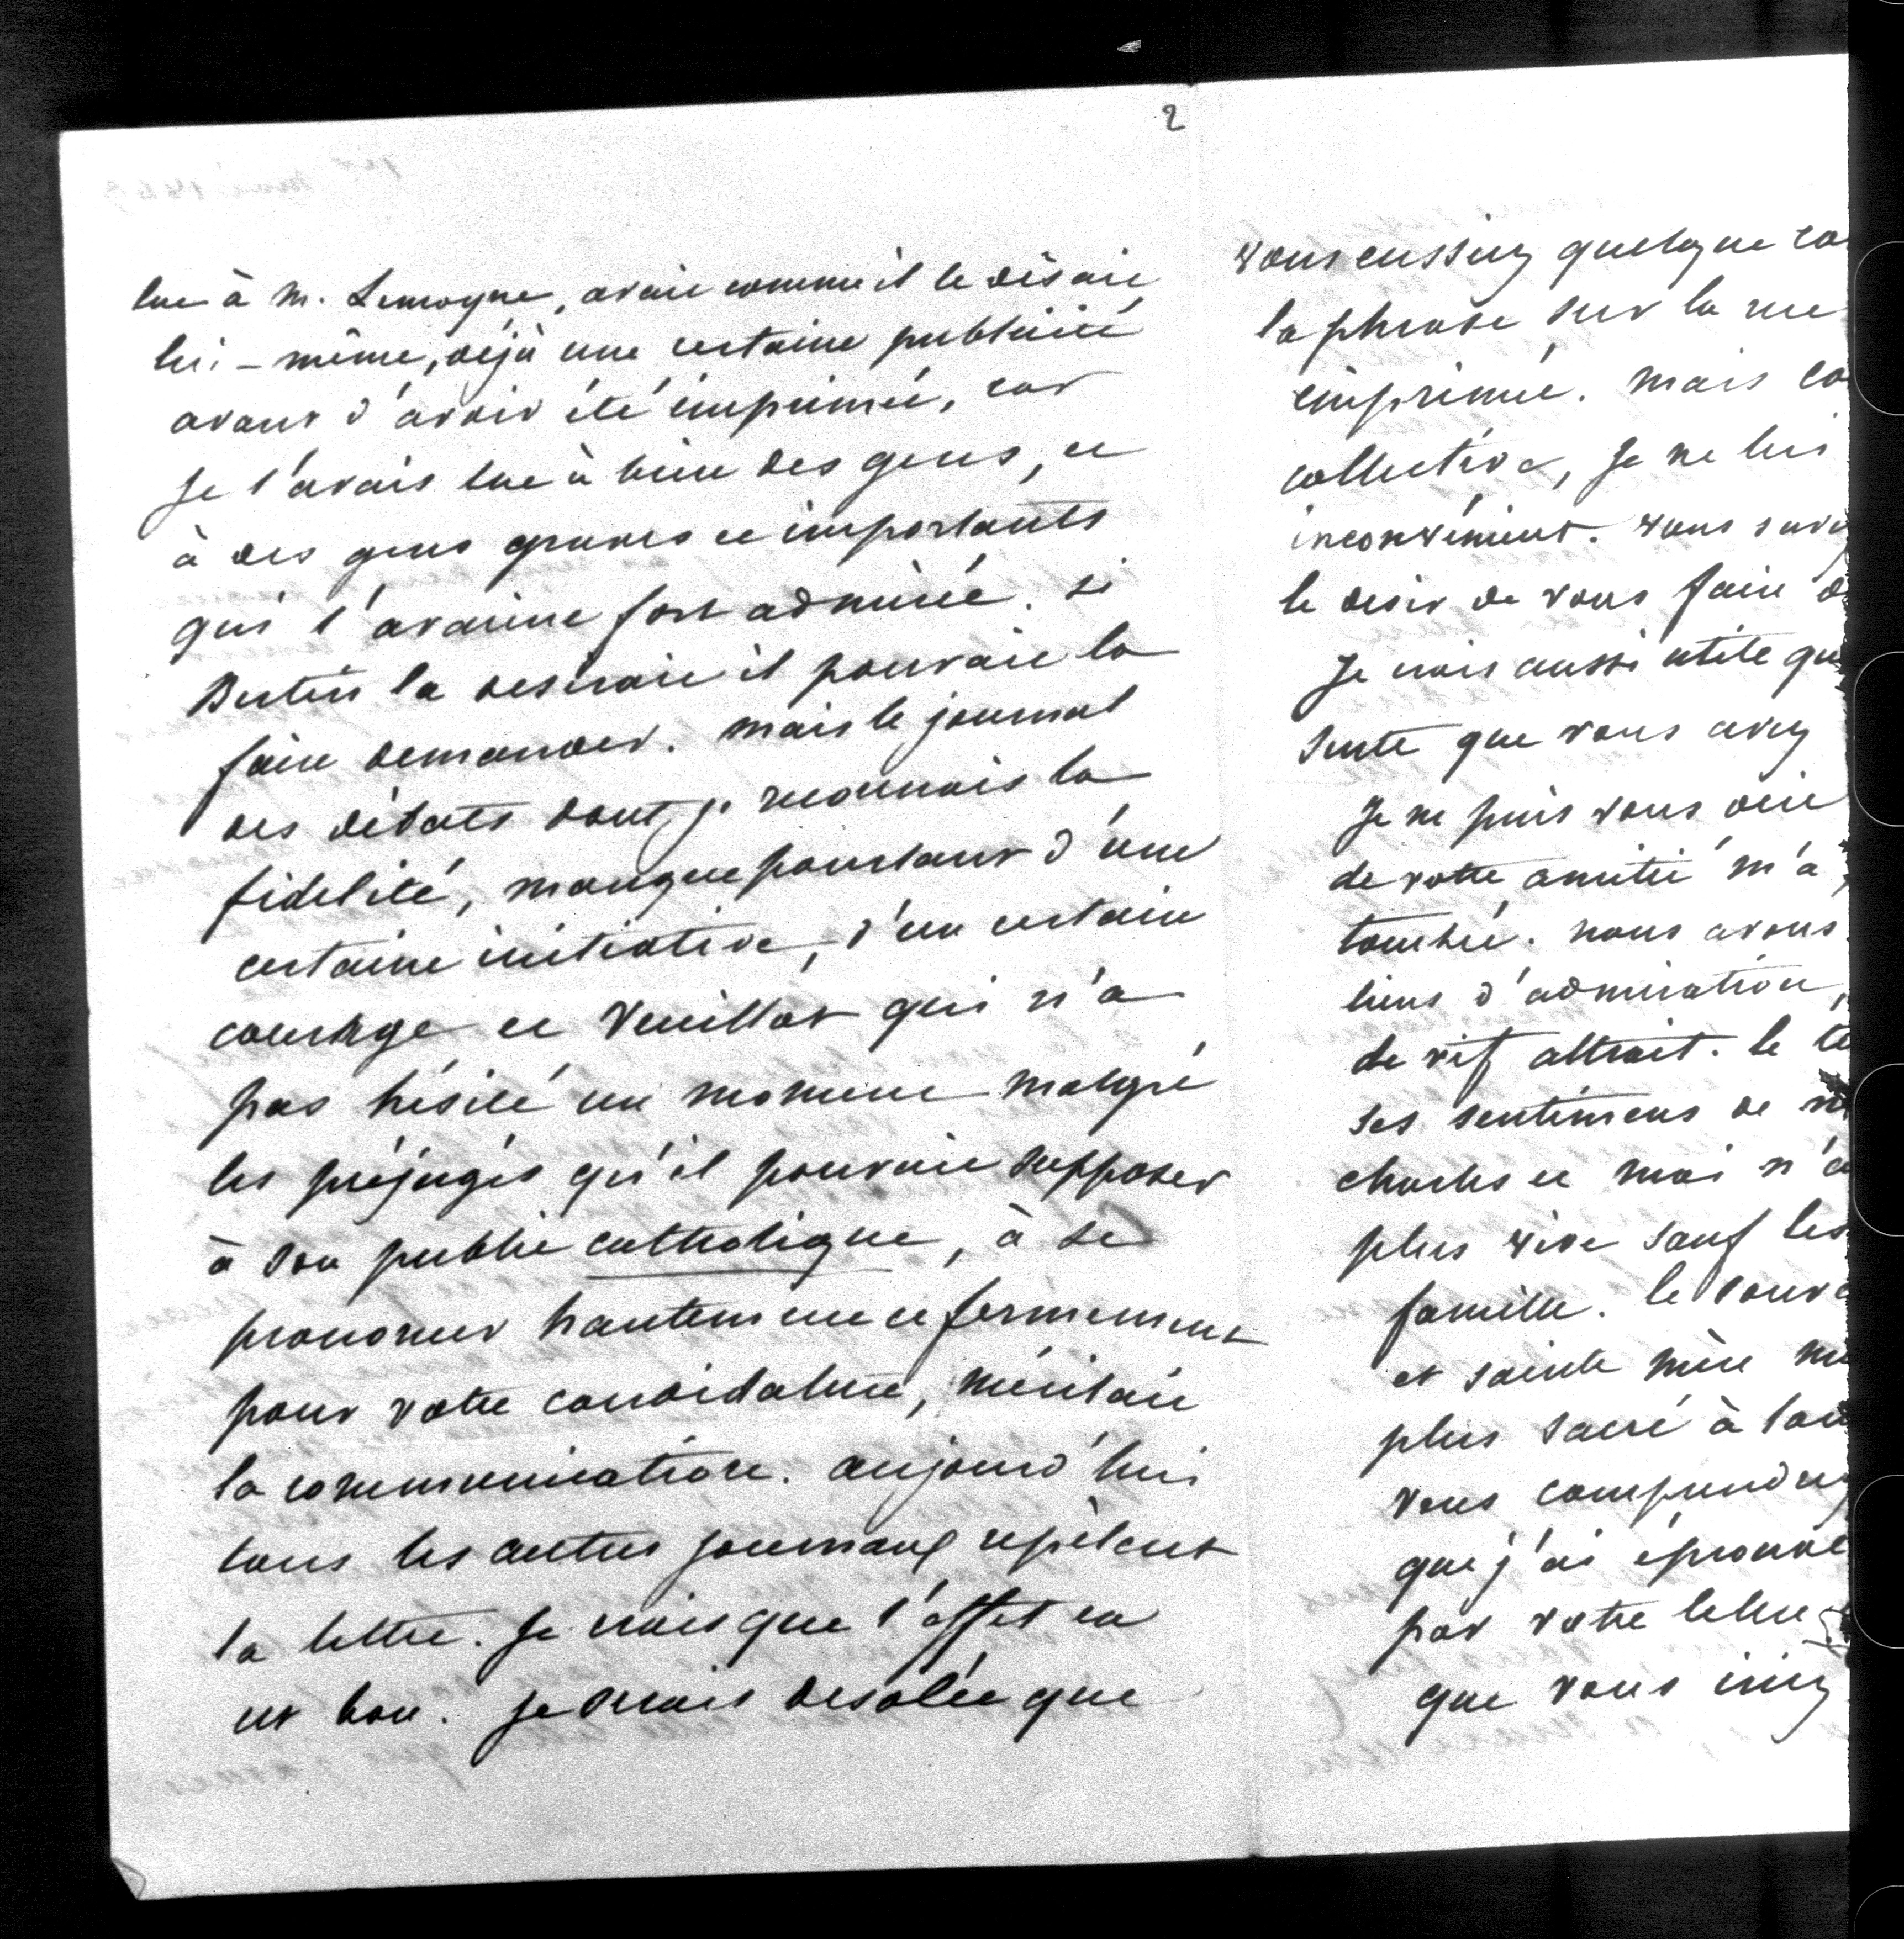 2
lue à M. Lemoyne, avait comme il le disait
lui-même, déjà une certaine publicité
avant d'avoir été imprimée, car
je l'avais lue à bien des gens, et
à des gens graves et importants
qui l'avaient fort admirée. si
Bertin la desirait il pouvait la
faire demander. mais le journal
des débats dont je reconnais la
fidelité, manque pourtant d'une
certaine initiative, d'un certain
courage et Veuillot qui n'a
pas hésité un moment malgré
les préjugés qu'il pouvait supposer
à son public catholique, à se
prononcer hautement et fermement
pour votre candidature, méritait
la communication. aujourd'hui
tous les autres journaux repètent
la lettre. Je crois que l'effet en
est bon. je serais desolée que
vous eussiez quelque co
la phrase sur la rue
imprimée. mais co
collective, je ne lui
inconvénient. vous savez
le desir de vous faire d
Je crois aussi utile qu
sente que vous avez
Je ne puis vous dire
de votre amitié m'a
touchée. nous avons
liens d'admiration,
de vif attrait. le te
ses sentimens de
charles et moi n'a
plus vive sauf les
famille. le souve
et sainte mère
plus sacré à tou
vous comprendrez
que j'ai éprouvé
par votre lettre
que vous